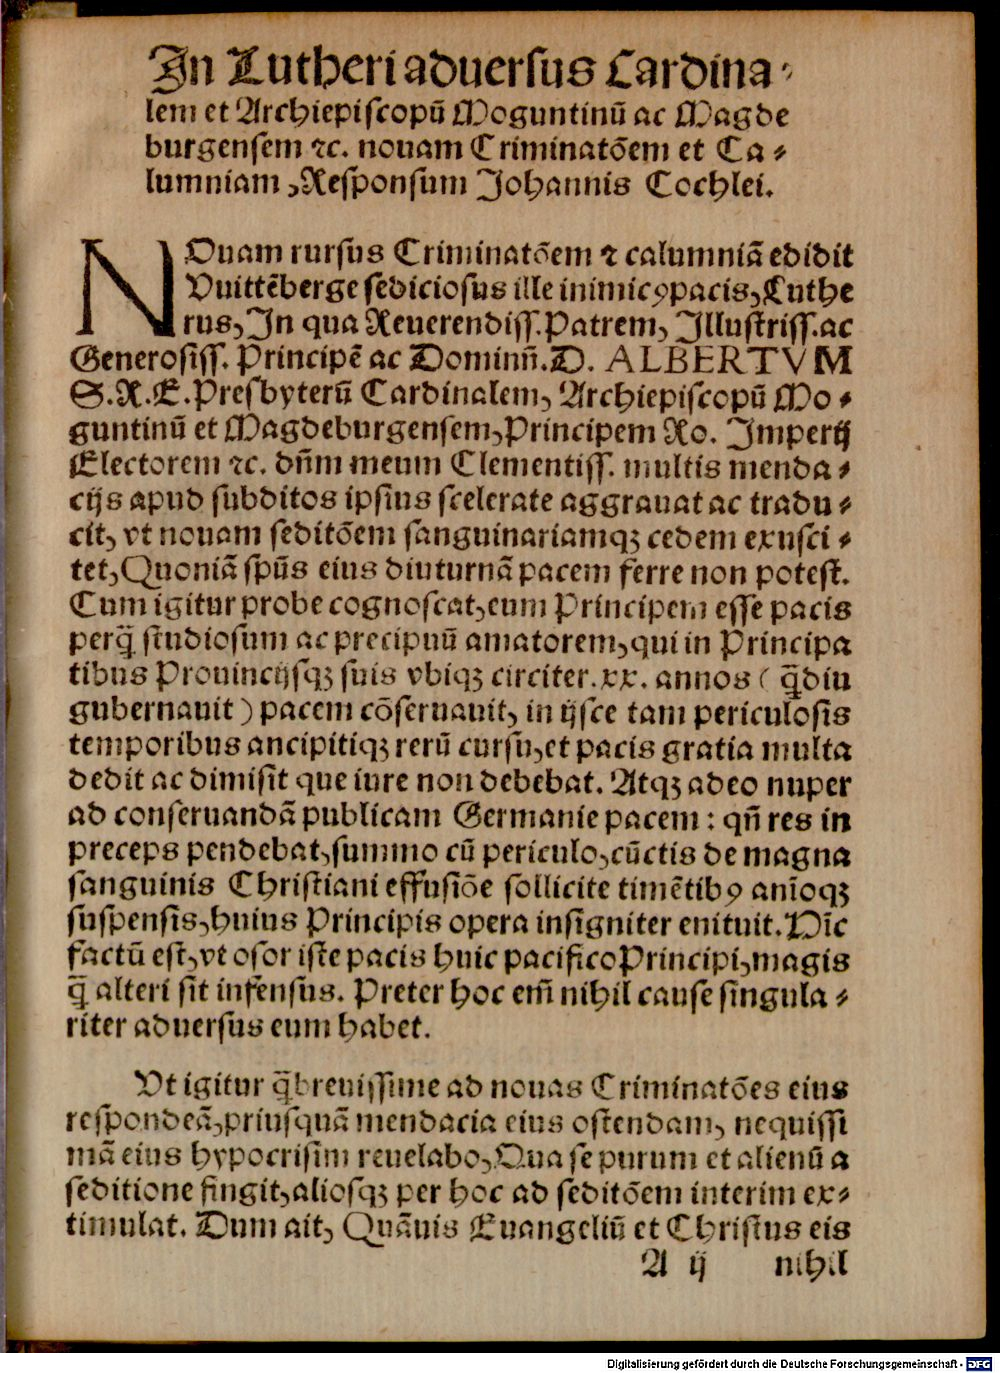 In Lutheri aduersus Cardina⸗
lem et Archiepiscopū Moguntinū ac Magde
burgensem ⁊c. nouam Criminatōem et Ca⸗
lumniam, Responsum Johannis Cochlei.
NOuam rursus Criminatōem ⁊ calumniā edidit
Vuittēberge sediciosus ille inimicꝰ pacis, Luthe
rus, In qua Reuerendiss. Patrem, Illustriss. ac
Generosiss. Principē ac Dominū. D. ALBERTVM
S. R. E. Presbyterū Cardinalem, Archiepiscopū Mo⸗
guntinū et Magdeburgensem, Principem Ro. Imperij
Electorem ⁊c. dn̄m meum Clementiss. multis menda⸗
cijs apud subditos ipsius scelerate aggrauat ac tradu⸗
cit, vt nouam seditōem sanguinariamqꝫ cedem exusci⸗
tet, Quoniā spūs eius diuturnā pacem ferre non potest.
Cum igitur probe cognoscat, eum Principem esse pacis
perq̄ studiosum ac precipuū amatorem, qui in Principa
tibus Prouincijsqꝫ suis vbiqꝫ circiter. xx. annos ( q̄diu
gubernauit ) pacem cōseruauit, in ijsce tam periculosis
temporibus ancipitiqꝫ rerū cursu, et pacis gratia multa
dedit ac dimisit que iure non debebat. Atqꝫ adeo nuper
ad conseruandā publicam Germanie pacem : qn̄ res in
preceps pendebat, summo cū periculo, cūctis de magna
sanguinis Christiani effusiōe sollicite timētibꝰ anīoqꝫ
suspensis, huius Principis opera insigniter enituit. Hīc
factū est, vt osor iste pacis huic pacifico Principi, magis
q̄ alteri sit infensus. Preter hoc em̄ nihil cause singula⸗
riter aduersus eum habet.
Vt igitur q̄breuissime ad nouas Criminatōes eius
respondeā, priusquā mendacia eius ostendam, nequissi
mā eius hypocrisim reuelabo, Qua se purum et alienū a
seditione fingit, aliosqꝫ per hoc ad seditōem interim ex⸗
timulat. Dum ait, Quāuis Euangeliū et Christus eis
A ij nihil
Digitalisierung gefördert durch die Deutsche Forschungsgemeinschaft - DFG